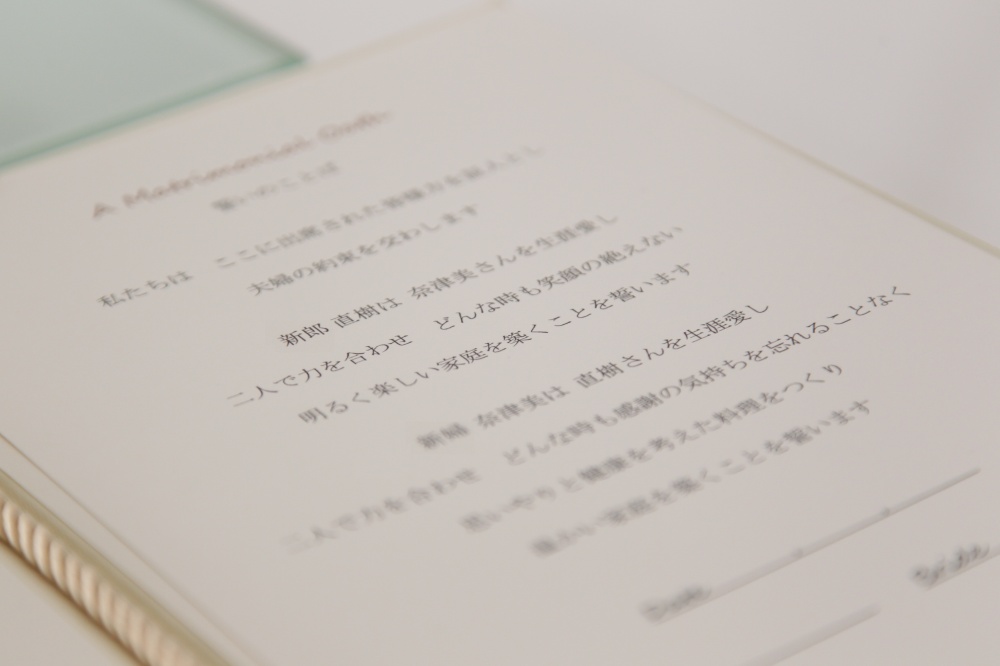 A Matrimonial Oath
誓いのことば
私たちは ここに出席された皆様方を証人とし
夫婦の約束を交わします
新郎 直樹は 奈津美さんを生涯愛し
二人で力を合わせ どんな時も笑顔の絶えない
明るく楽しい家庭を築くことを誓います
新婦 奈津美は 直樹さんを生涯愛し
二人で力を合わせ どんな時も感謝の気持ちを忘れることなく
思いやりと健康を考えた料理をつくり
温かい家庭を築くことを誓います
Date
Bride